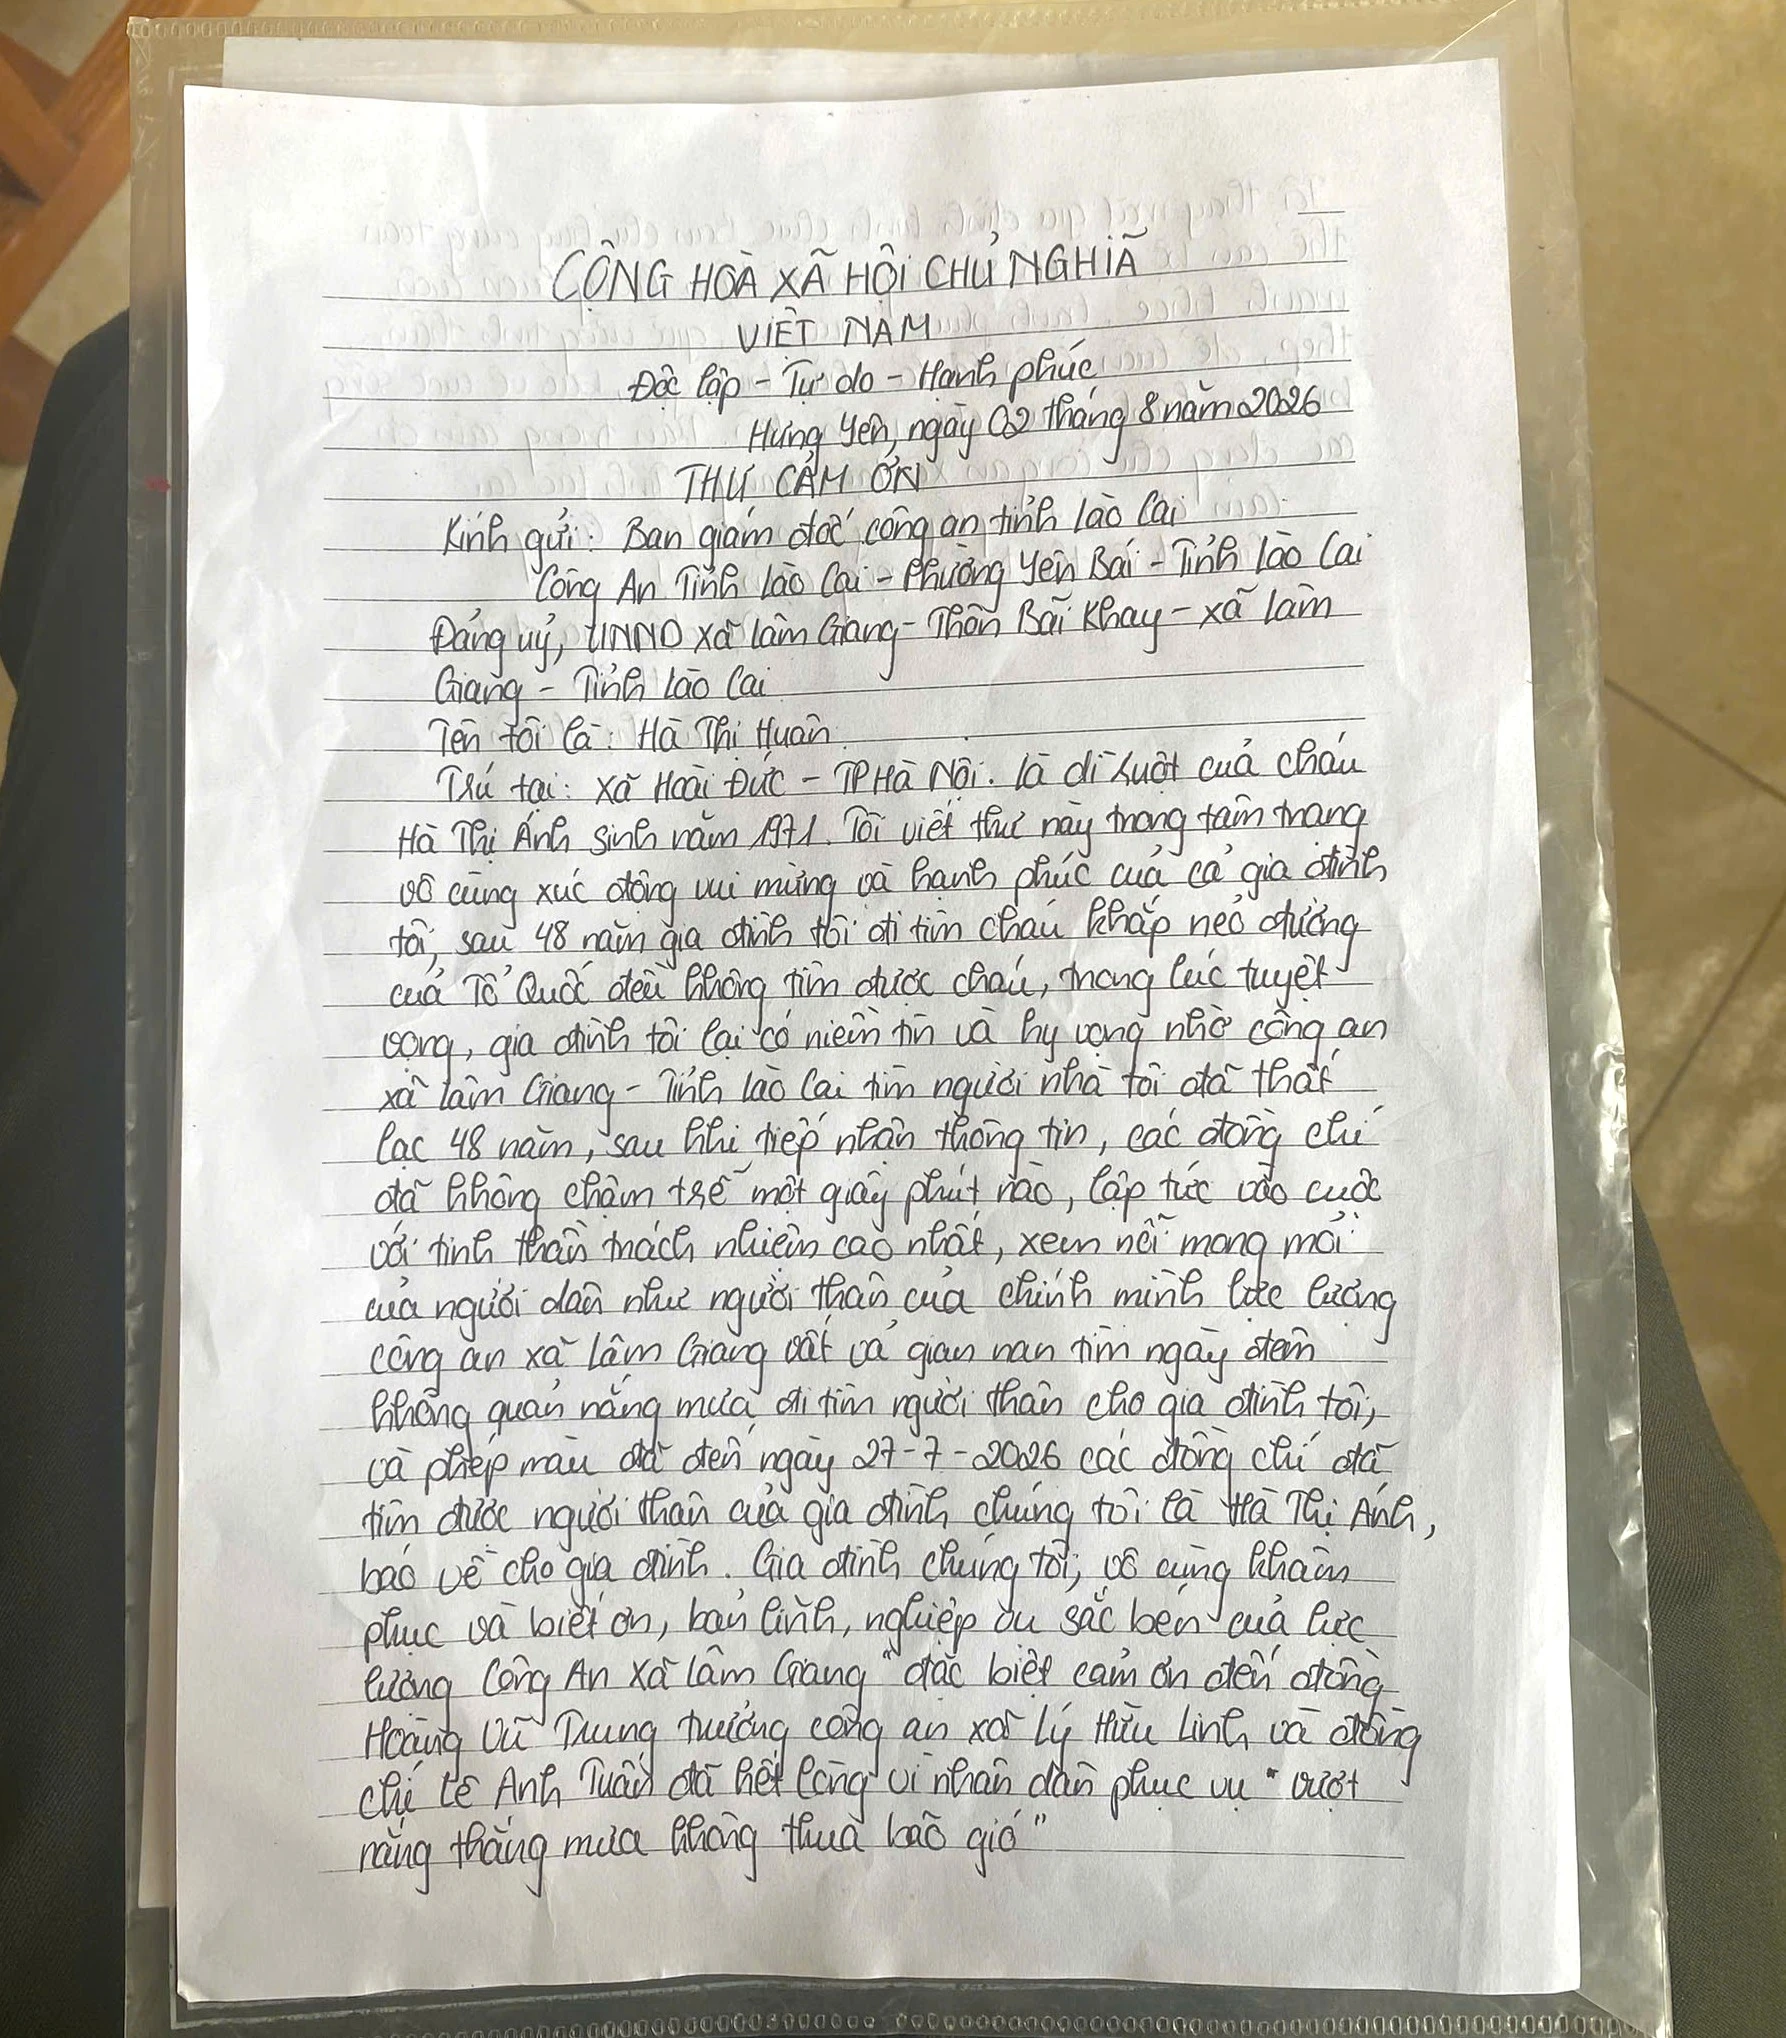 CỘNG HOÀ XÃ HỘI CHỦ NGHIÃ
VIỆT NAM
Độc lập - Tự do - Hạnh phúc
Hưng Yên, ngày 02 tháng 8 năm 2026
THƯ CẢM ƠN
Kính gửi: Ban giám đốc công an tỉnh Lào Cai
Công An Tỉnh Lào Cai - Phường Yên Bái - Tỉnh Lào Cai
Đảng uỷ, UNND xã Lâm Giang - Thôn Bãi Khay - xã Lâm
Giang - Tỉnh Lào Cai
Tên tôi là: Hà Thị Huân
Trú tại: xã Hoài Đức - TP Hà Nội. Là dì ruột của cháu
Hà Thị Ánh sinh năm 1971. Tôi viết thư này trong tâm trạng
vô cùng xúc động vui mừng và hạnh phúc của cả gia đình
tôi, sau 48 năm gia đình tôi đi tìm cháu khắp nẻo đường
của Tổ Quốc đều không tìm được cháu, trong lúc tuyệt
vọng, gia đình tôi lại có niềm tin và hy vọng nhờ công an
xã Lâm Giang - Tỉnh Lào Cai tìm người nhà tôi đã thất
lạc 48 năm, sau khi tiếp nhận thông tin, các đồng chí
đã không chậm trễ một giây phút nào, lập tức vào cuộc
với tinh thần trách nhiệm cao nhất, xem nỗi mong mỏi
của người dân như người thân của chính mình lực lượng
công an xã Lâm Giang vất vả gian nan tìm ngày đêm
không quản nắng mưa đi tìm người thân cho gia đình tôi,
và phép màu đã đến ngày 27-7-2026 các đồng chí đã
tìm được người thân của gia đình chúng tôi là Hà Thị Ánh,
báo về cho gia đình. Gia đình chúng tôi, vô cùng khâm
phục và biết ơn, bản lĩnh, nghiệp vụ sắc bén của lực
lượng Công An xã Lâm Giang "đặc biệt cảm ơn đến đồng
Hoàng Vũ Trung trưởng công an xã Lý Hữu Linh và đồng
chí Lê Anh Tuấn đã hết lòng vì nhân dân phục vụ "vượt
nắng thắng mưa không thua bão gió"